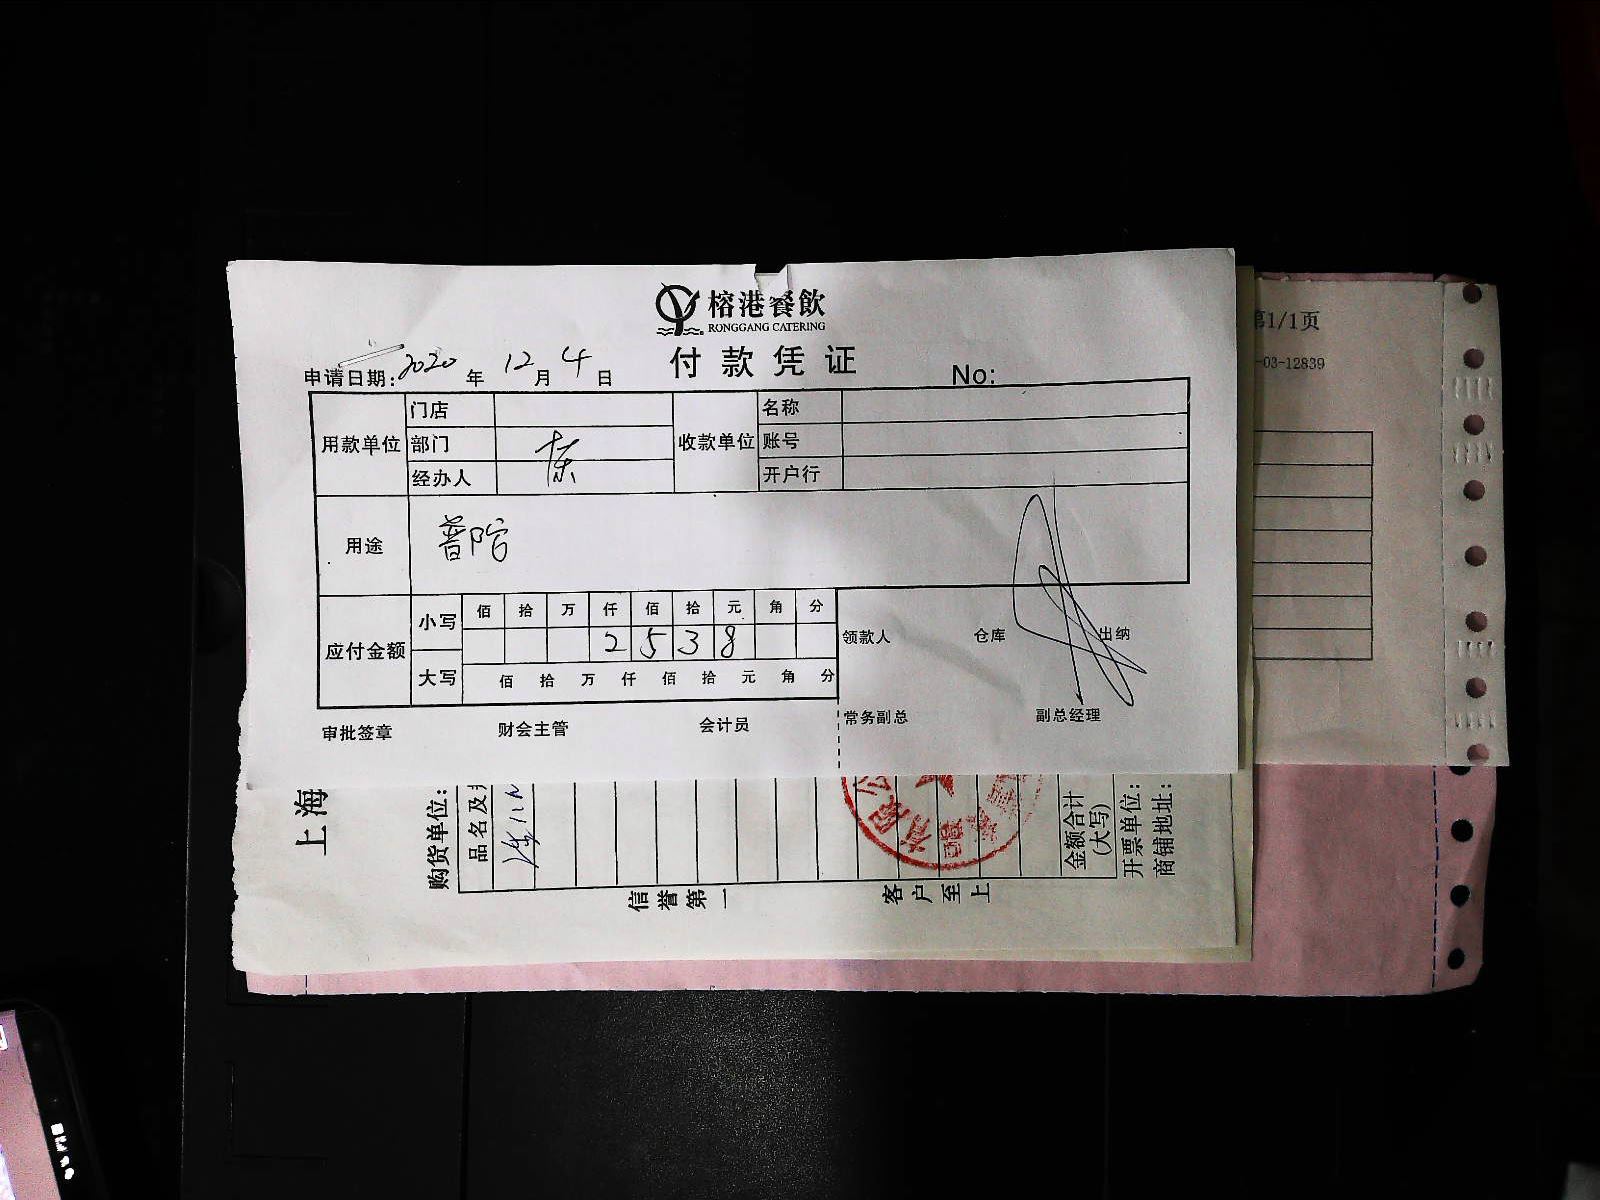 榕港餐飲
RONGGANG CATERING
付款凭证
申请日期: 2020 年 12 月 4 日 No:
用款单位 门店 收款单位 名称
部门 账号
经办人 开户行
用途 普陀
应付金额 小写 佰 拾 万 仟 佰 拾 元 角 分
2 5 3 8
大写 佰 拾 万 仟 佰 拾 元 角 分
领款人 仓库 出纳
常务副总 副总经理
审批签章 财会主管 会计员
第1/1页
-03-12839
上海
购货单位:
品名及
金额合计
(大写)
开票单位:
商铺地址:
信誉第一 客户至上